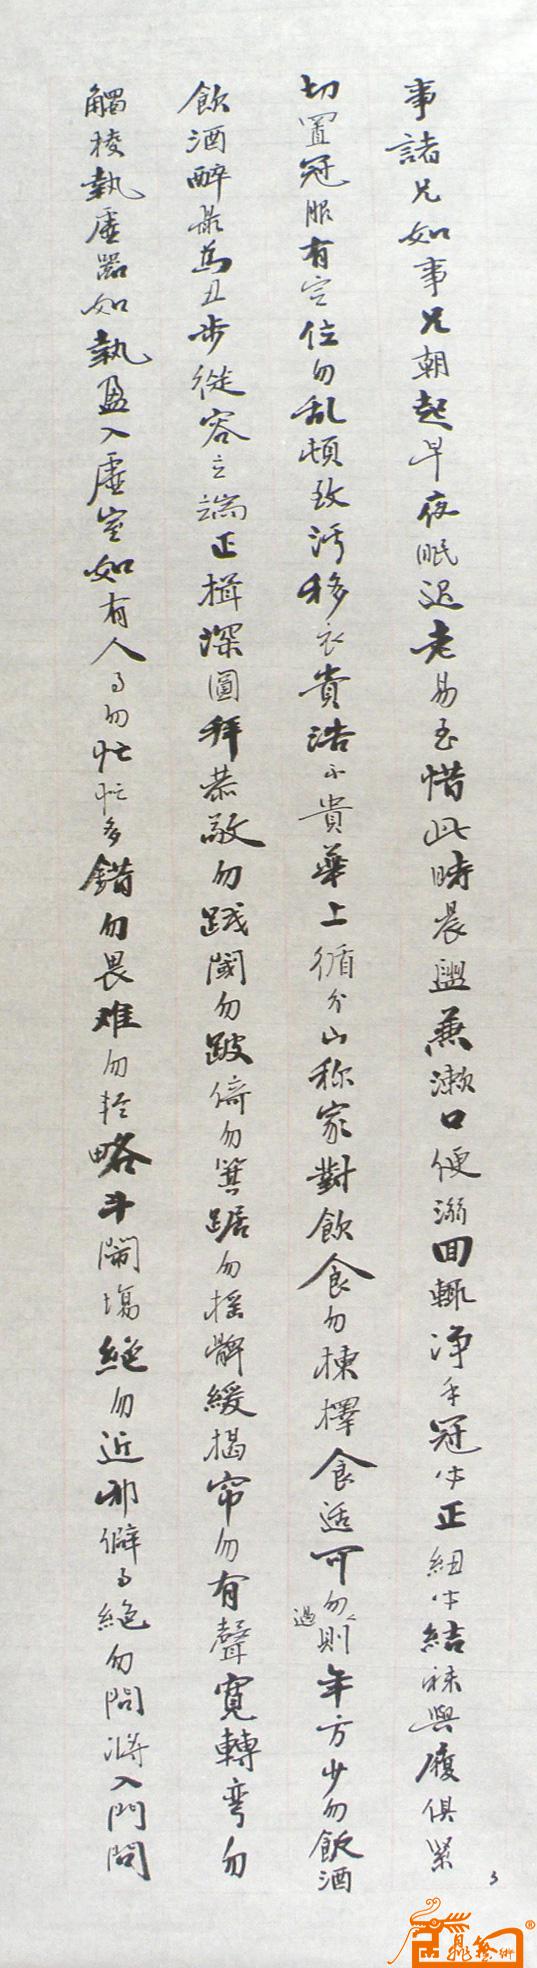 事諸兄如事兄朝起早夜眠迟老易至惜此時晨盥兼漱口便溺回輒净手冠必正紐必結袜與履俱紧
切置冠服有定位勿乱頓致污秽衣貴洁不貴華上循分下称家對飲食勿揀擇食适可勿過則年方少勿飲酒
飲酒醉最為丑步從容立端正揖深圓拜恭敬勿践閾勿跛倚勿箕踞勿摇髀緩揭帘勿有聲寬轉弯勿
觸棱執虚器如執盈入虚室如有人事勿忙忙多錯勿畏难勿轻略斗鬧場絕勿近邪僻事絕勿問將入門問
3